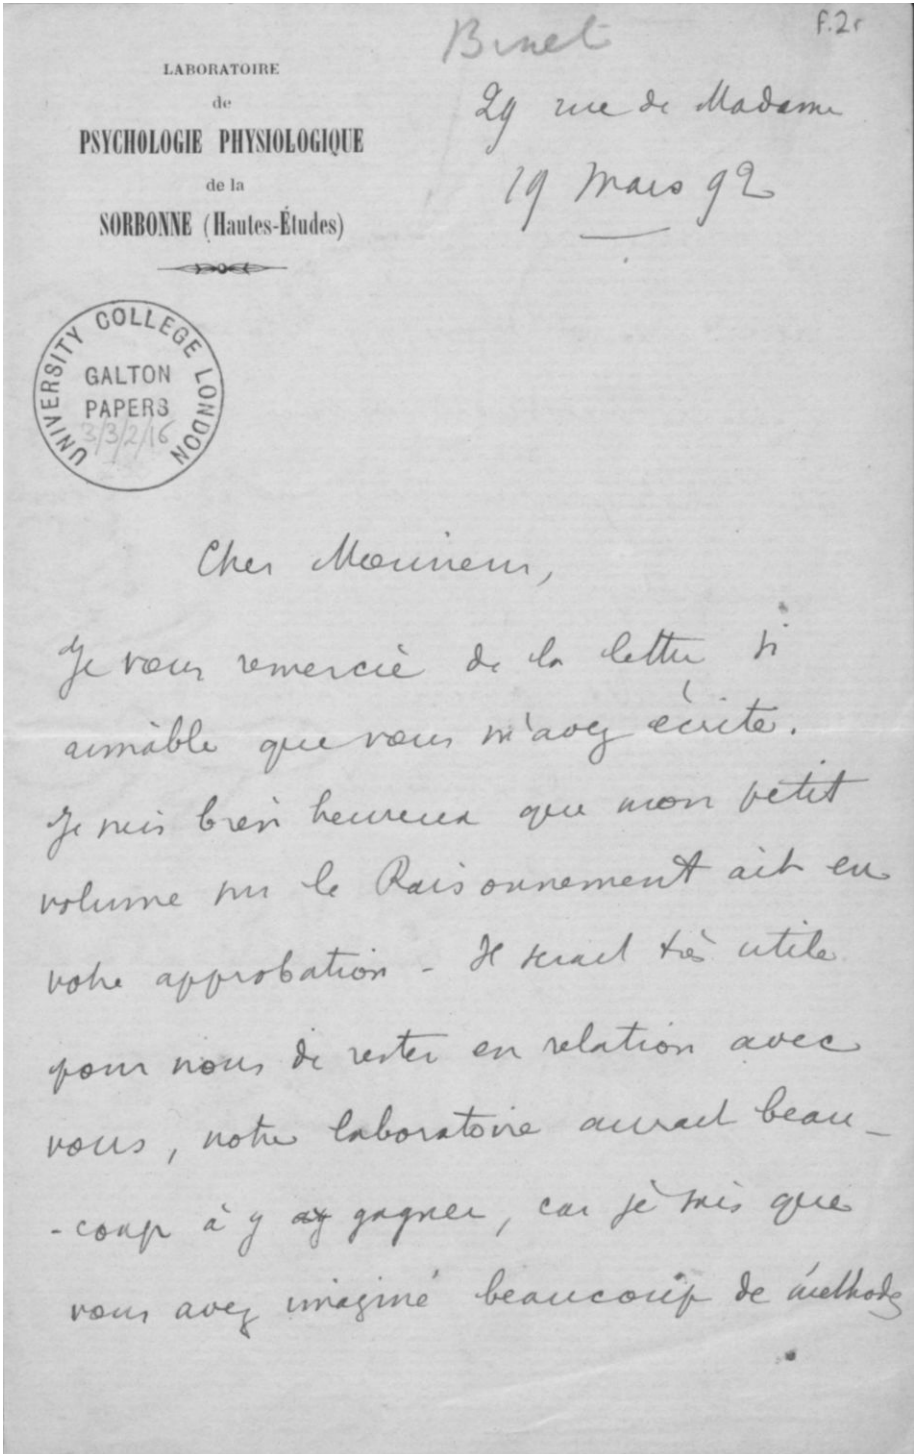 Binet
f.2r
LABORATOIRE
de
PSYCHOLOGIE PHYSIOLOGIQUE
de la
SORBONNE (Hautes-Études)
29 rue de Madame
19 Mars 92
UNIVERSITY COLLEGE LONDON
GALTON
PAPERS
3/3/2/16
Cher Monsieur,
Je vous remercie de la lettre si
aimable que vous m'avez écrite.
Je suis bien heureux que mon petit
volume sur le Raisonnement ait eu
votre approbation - Il serait très utile
pour nous de rester en relation avec
vous, notre laboratoire aurait beau-
-coup à y gagner, car je sais que
vous avez imaginé beaucoup de méthodes